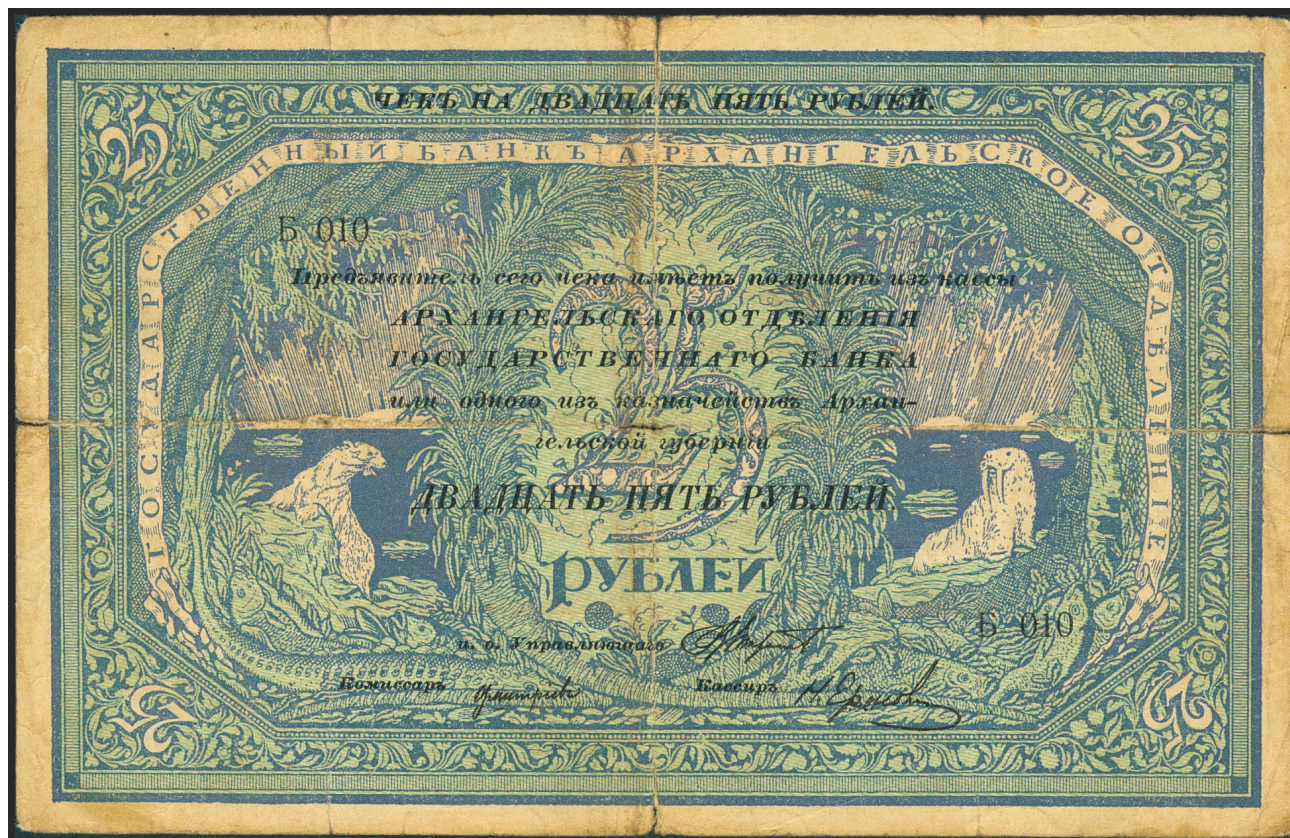 ЧЕКЪ НА ДВАДЦАТЬ ПЯТЬ РУБЛЕЙ.
25 25
ГОСУДАРСТВЕННЫЙ БАНКЪ АРХАНГЕЛЬСКОЕ ОТДѢЛЕНІЕ
Б 010
Предъявитель сего чека имѣетъ получить изъ кассы
АРХАНГЕЛЬСКАГО ОТДѢЛЕНІЯ
ГОСУДАРСТВЕННАГО БАНКА
или одного изъ казначействъ Архан-
гельской губерніи
25
ДВАДЦАТЬ ПЯТЬ РУБЛЕЙ.
РУБЛЕЙ
Б 010
и. о. Управляющаго
Комиссаръ Кассиръ
25 25